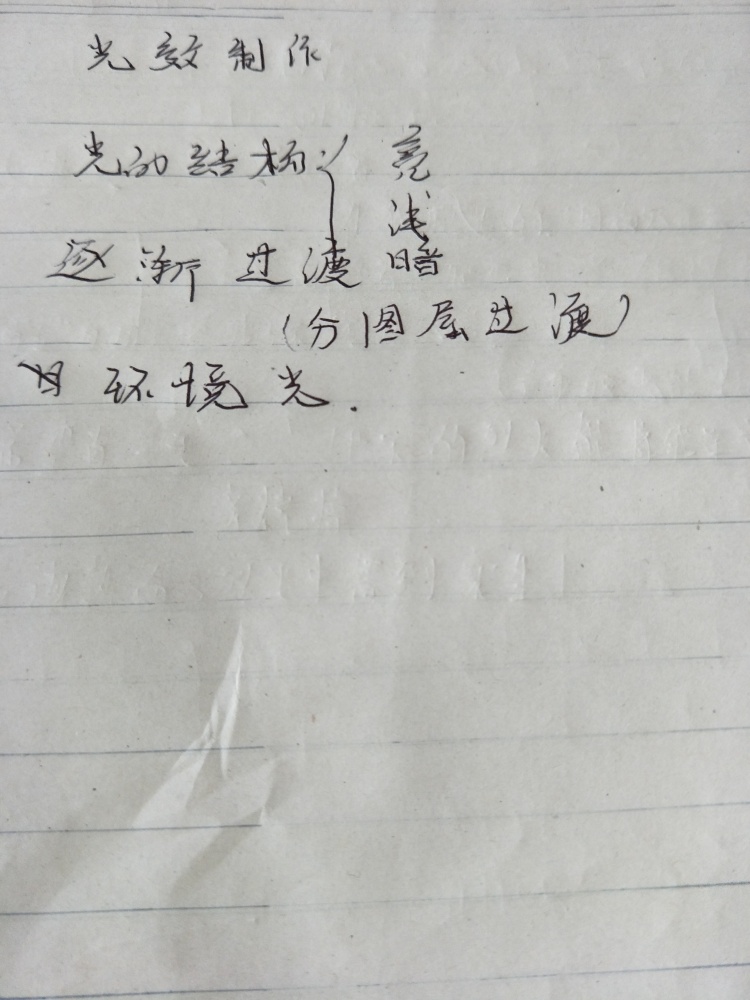 光效制作
光的结构:{ 亮
浅
逐渐过渡 暗
(分图层过渡)
环境光.